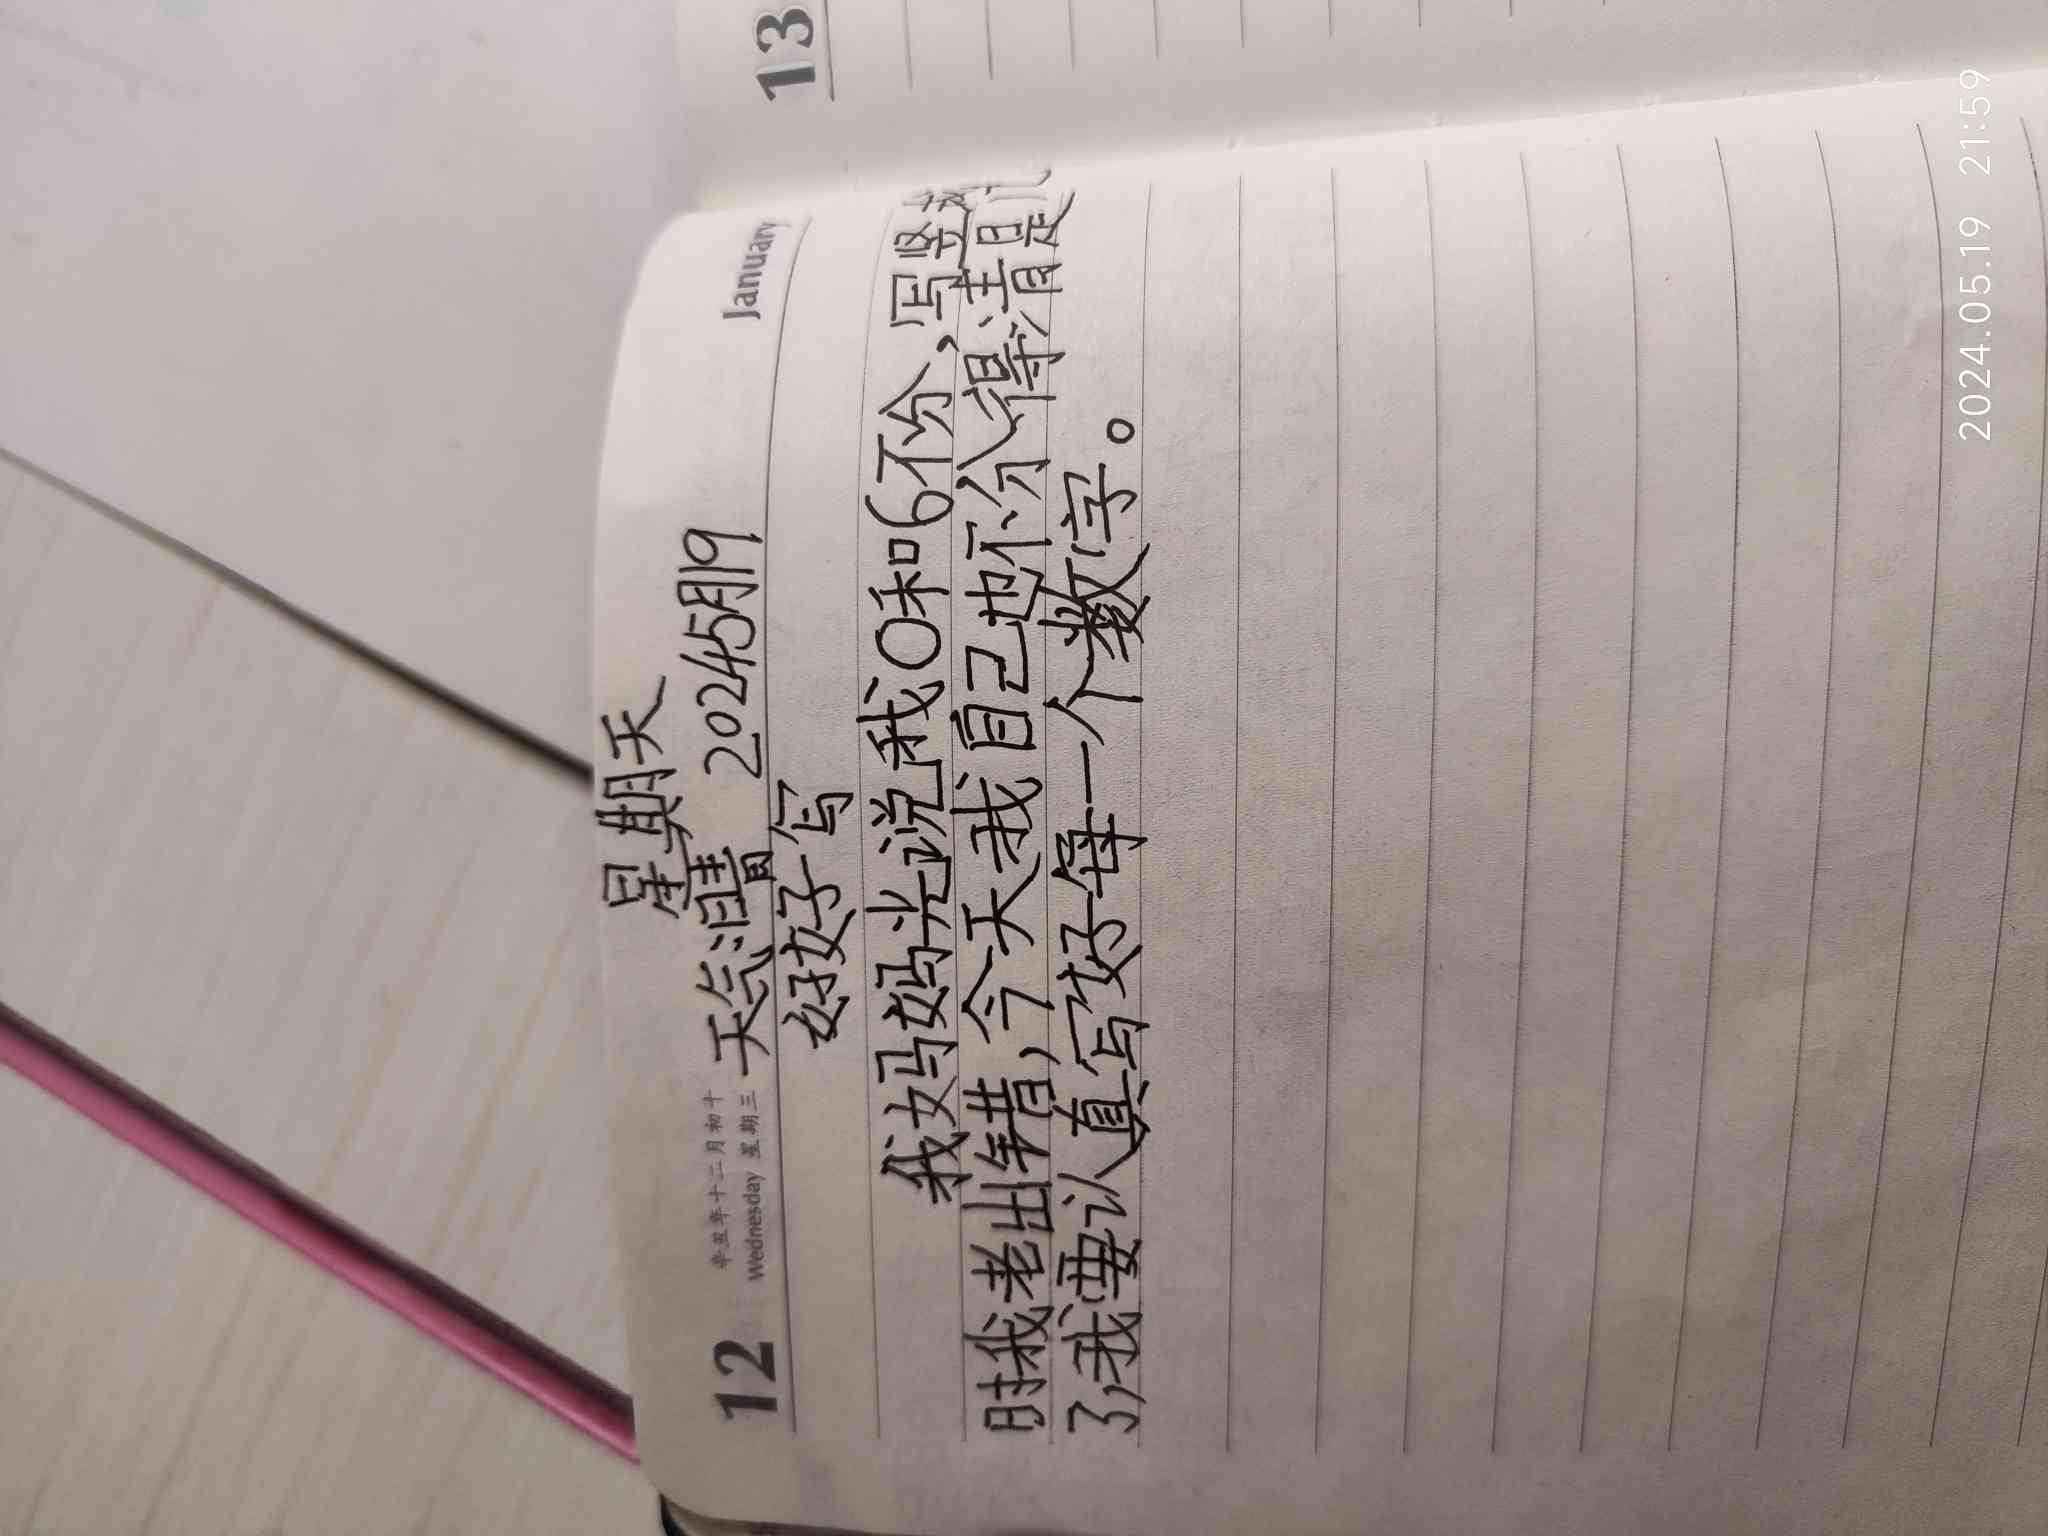 13
January
辛丑年十二月初十
12
Wednesday 星期三
星期天
天气 2024 5月19
好好写
我妈妈光说我0和6不分,写竖
时我老出错,今天我自己也不分得清是
了,我要认真写好每一个数字。
2024.05.19 21:59